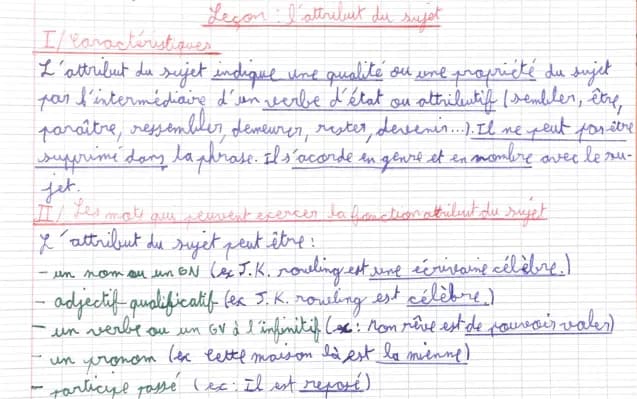 Leçon : l'attribut du sujet
I/ Caractéristiques
L'attribut du sujet indique une qualité ou une propriété du sujet
par l'intermédiaire d'un verbe d'état ou attributif (sembler, être,
paraître, ressembler, demeurer, rester, devenir...). Il ne peut pas être
supprimé dans la phrase. Il s'acorde en genre et en nombre avec le su-
jet.
II/ Les mots qui peuvent exercer la fonction attribut du sujet
L'attribut du sujet peut être :
- un nom ou un GN (ex J.K. rowling est une écrivaine célèbre.)
- adjectif qualificatif (ex J.K. rowling est célèbre.)
- un verbe ou un GV à l'infinitif (ex : Mon rêve est de pouvoir voler)
- un pronom (ex cette maison là est la mienne)
- participe passé (ex : Il est reposé)